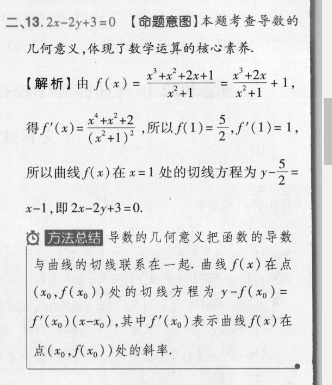 二、13. 2x-2y+3=0 【命题意图】本题考查导数的
几何意义,体现了数学运算的核心素养.
【解析】由 f(x)=\frac{x^3+x^2+2x+1}{x^2+1}=\frac{x^3+2x}{x^2+1}+1,
得f'(x)=\frac{x^4+x^2+2}{(x^2+1)^2},所以f(1)=\frac{5}{2},f'(1)=1,
所以曲线f(x)在x=1处的切线方程为y-\frac{5}{2}=
x-1,即2x-2y+3=0.
方法总结 导数的几何意义把函数的导数
与曲线的切线联系在一起.曲线f(x)在点
(x_0,f(x_0))处的切线方程为y-f(x_0)=
f'(x_0)(x-x_0),其中f'(x_0)表示曲线f(x)在
点(x_0,f(x_0))处的斜率.